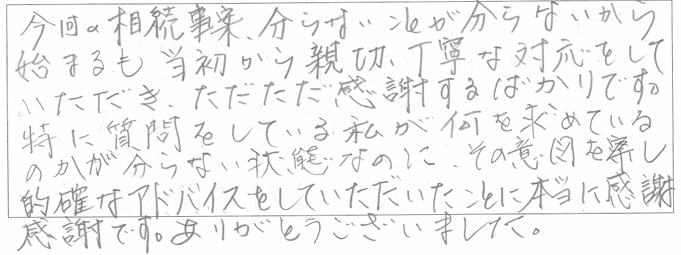 今回の相続事案、分らないことが分らないから
始まるも当初から親切、丁寧な対応をして
いただき、ただただ感謝するばかりです。
特に質問をしている私が何を求めている
のかが分らない状態なのに、その意図を察し
的確なアドバイスをしていただいたことに本当に感謝
感謝です。ありがとうございました。